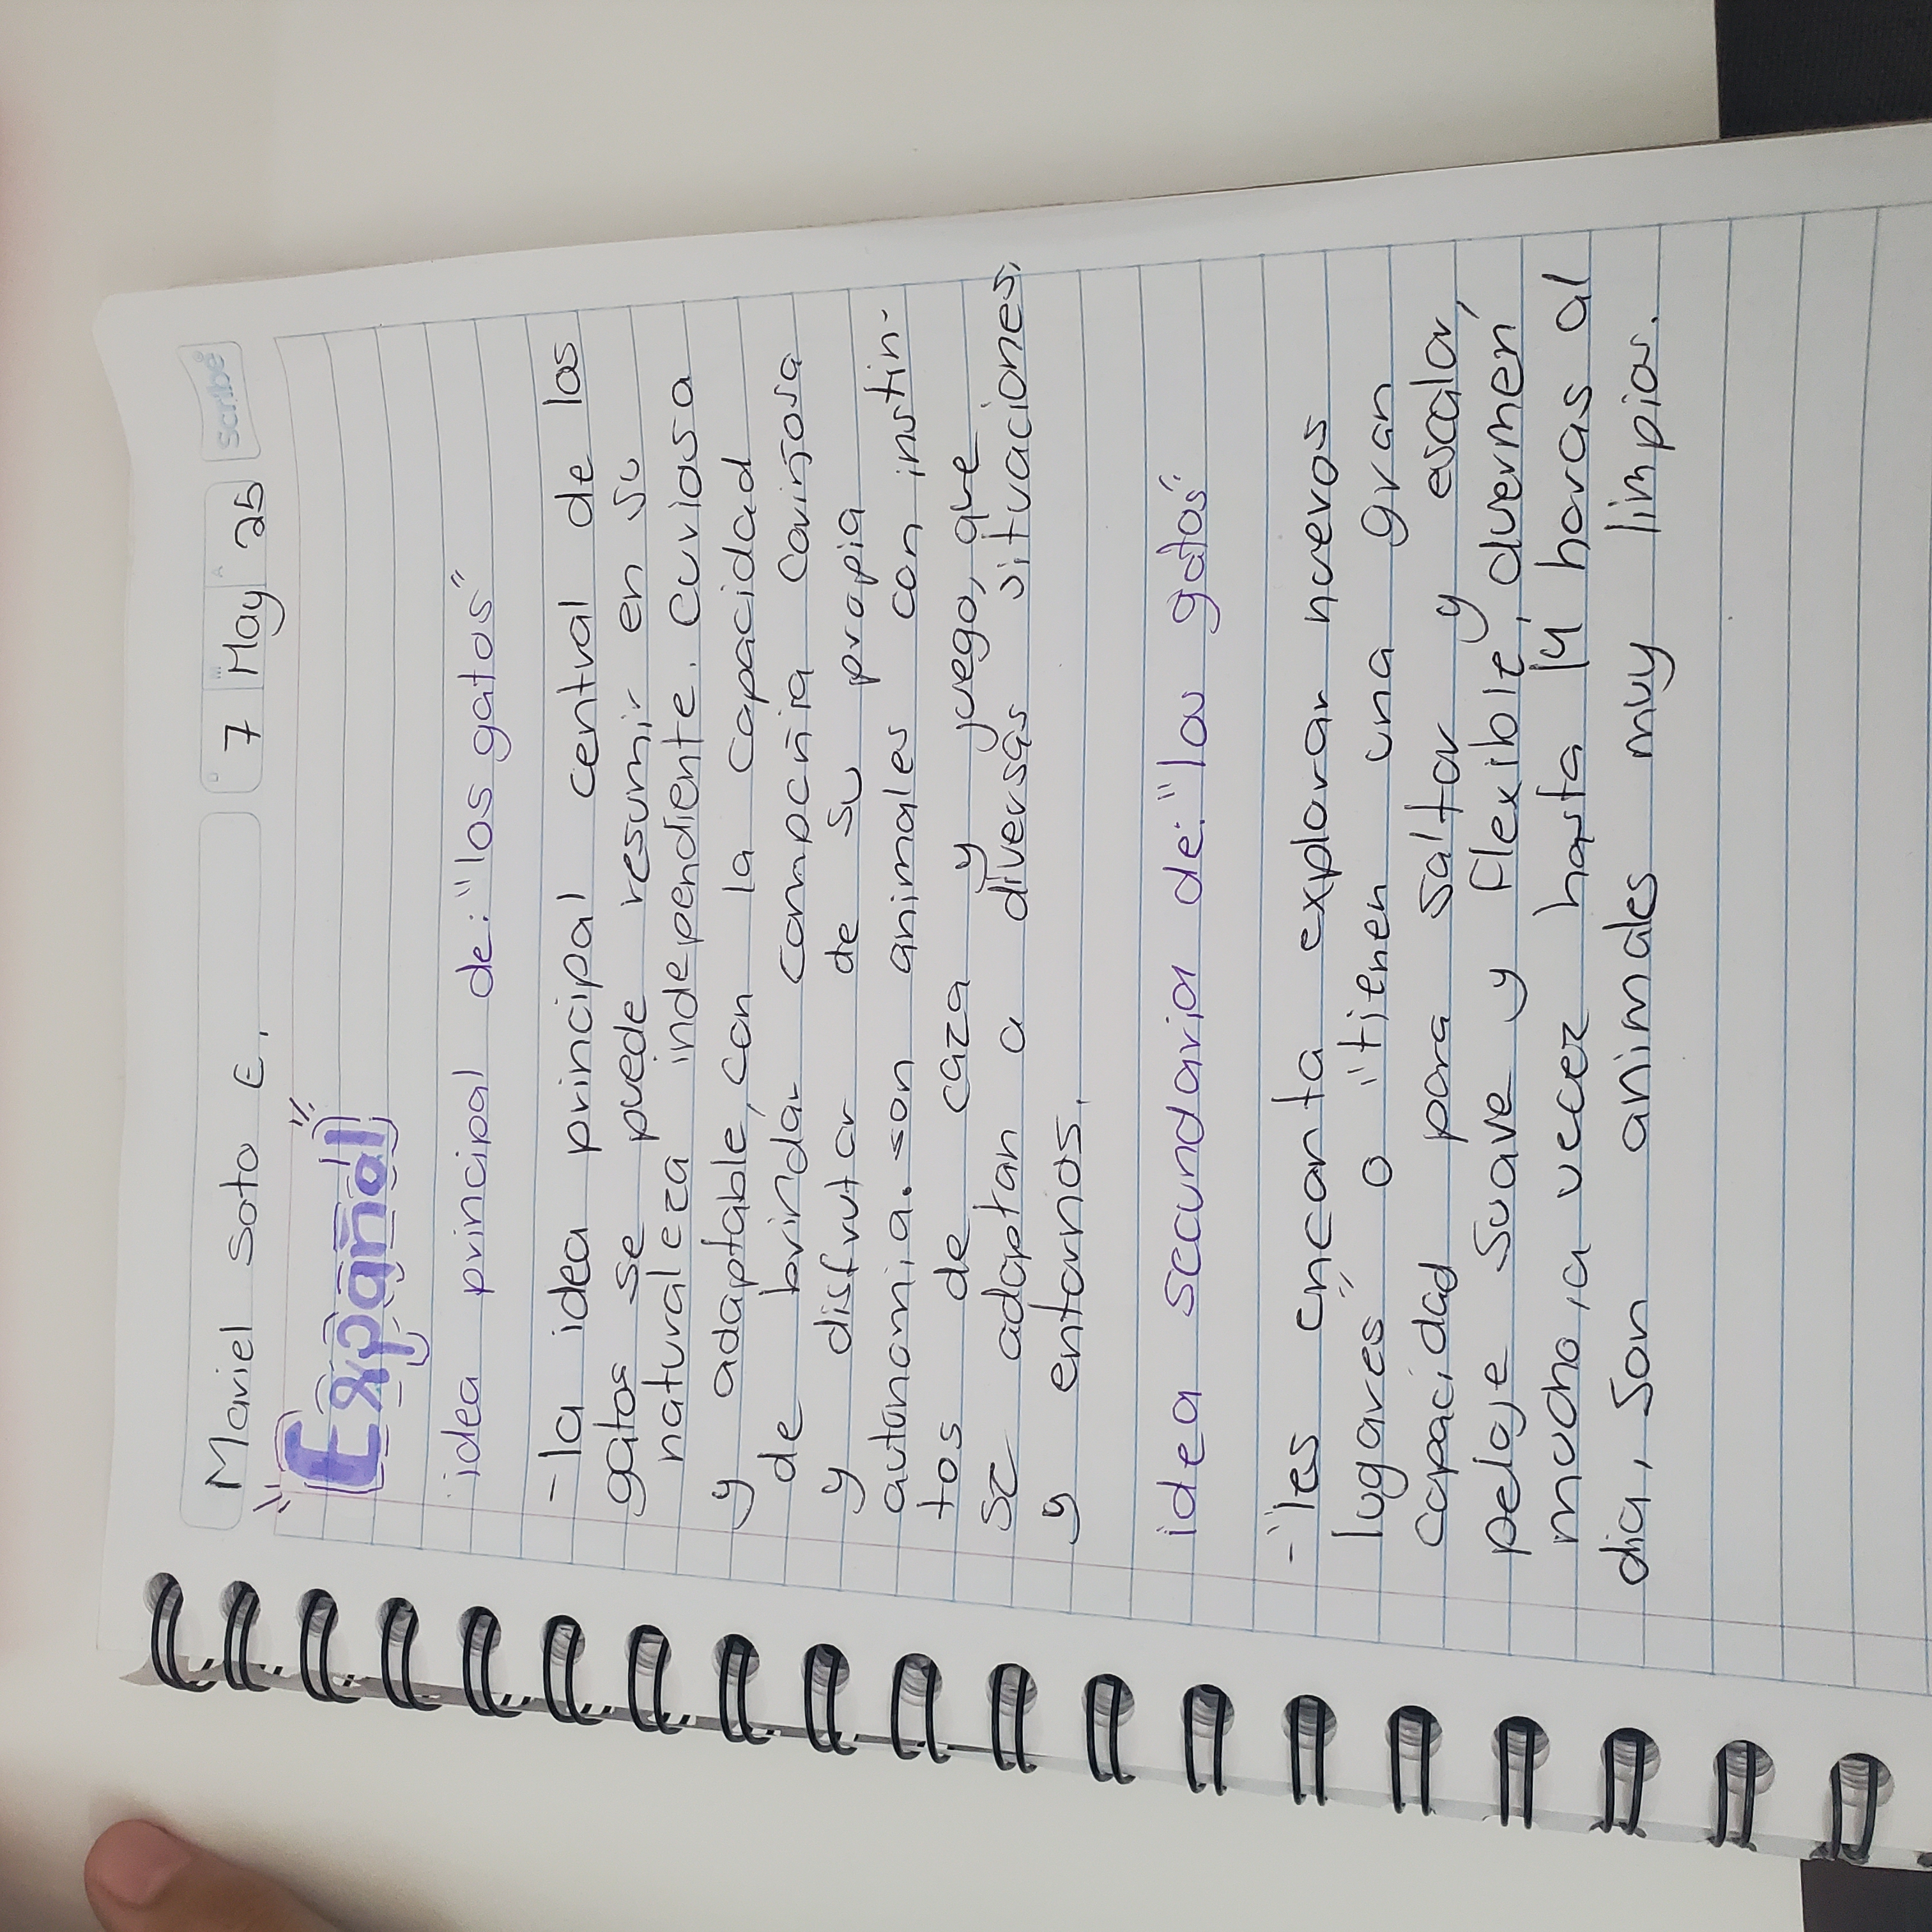 Mariel Soto E.
7 May 25
scribe
Español
idea principal de: "los gatos"
-la idea principal central de los
gatos se puede resumir en su
naturaleza independiente. curiosa
y adaptable, con la capacidad
de brindar compañia cariñosa
y disfrutar de su propia
autonomia. son animales con instin-
tos de caza y juego, que
se adaptan a diversas situaciones
y entornos.
idea secundarian de: "los gatos"
-"les encanta explorar nuevos
lugares" o "tienen una gran
capacidad para saltar y escalar,
pelaje suave y flexible, duermen
mucho, a veces hasta 14 horas al
dia, Son animales muy limpios.